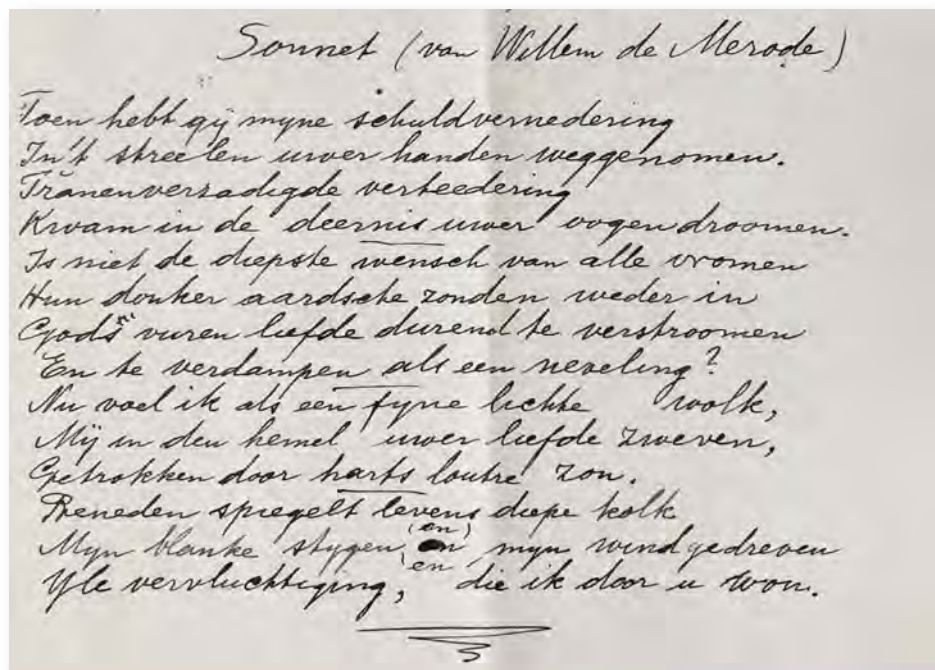 Sonnet (van Willem de Merode)
Toen hebt gij myne schuldvernedering
In't streelen uwer handen weggenomen.
Tranenverzadigde verteedering
Kwam in de deernis uwer oogen droomen.
Is niet de diepste wensch van alle vromen
Hun donker aardsche zonden weder in
Gods vuren liefde durend te verstroomen
En te verdampen als een neveling?
Nu voel ik als een fyne lichte wolk,
Mij in den hemel uwer liefde zweven,
Getrokken door harts loutre zon.
Beneden spiegelt levens diepe kolk
Myn blanke stygen, (en) en myn windgedreven
Yle vervluchtiging, die ik door u won.